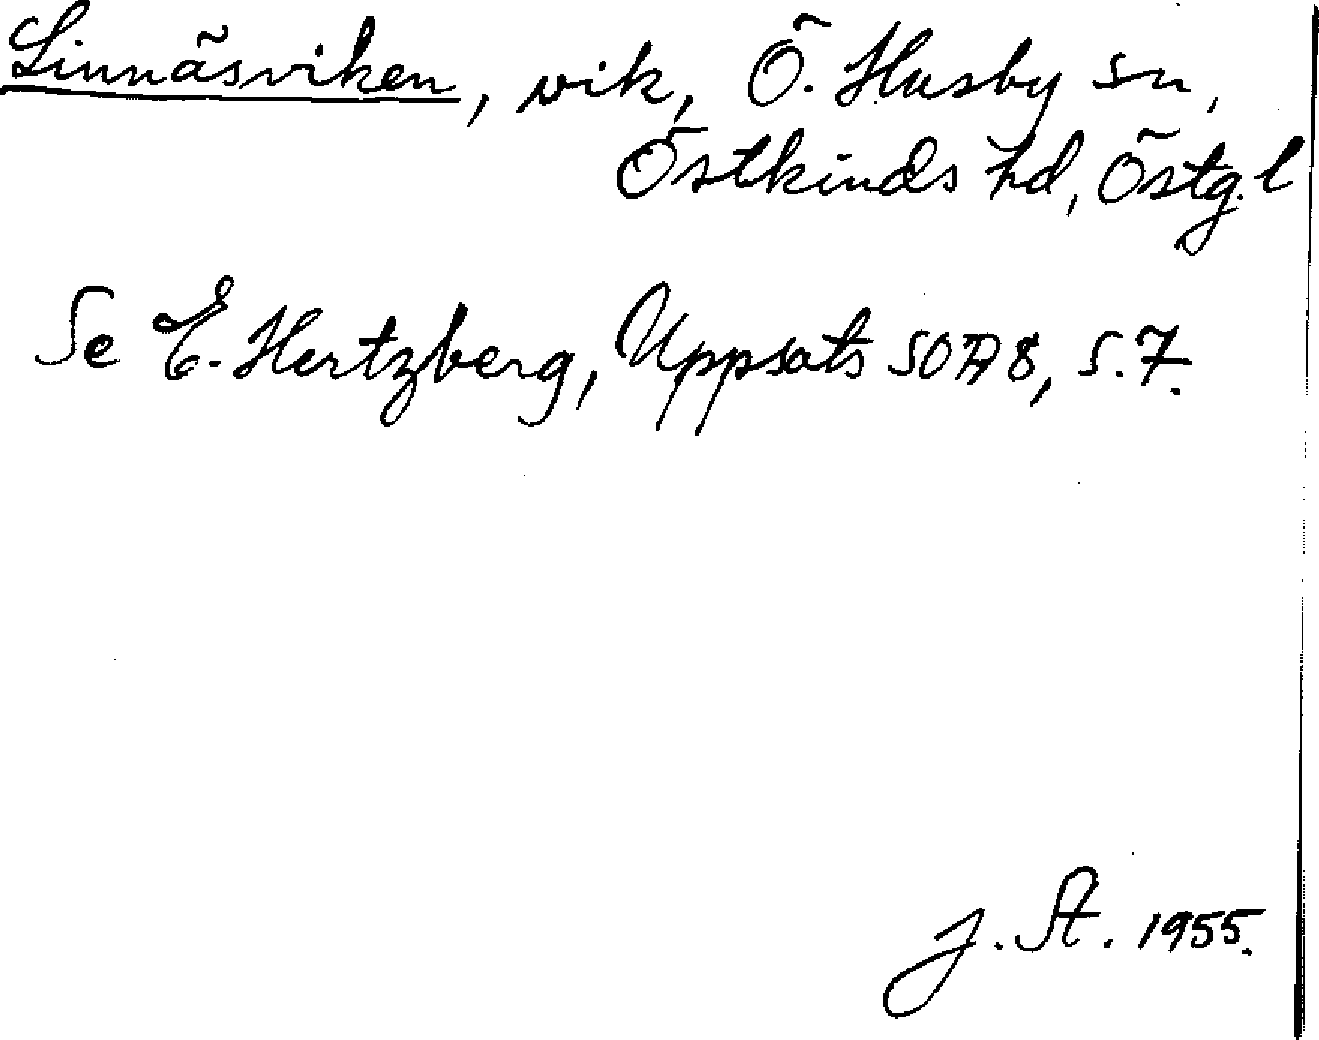 Linnäsviken, vik, Ö. Husby sn,
Östkinds hd, Östg. l
Se E. Hertzberg, Uppsats SOA 8, s. 7.
J. St. 1955.